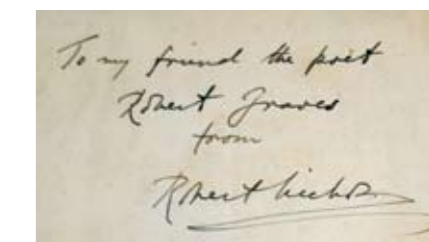 To my friend the poet
Robert Graves
from
Robert Nichols